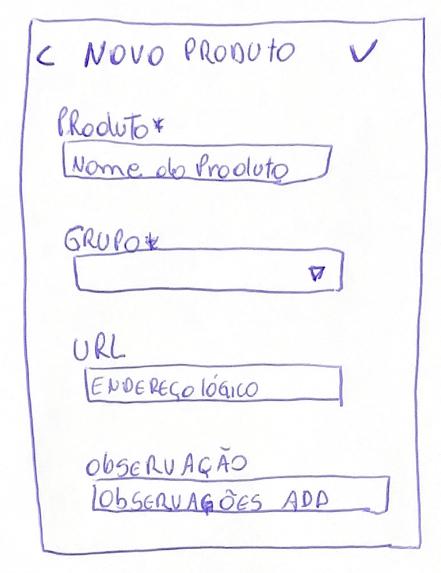 < NOVO PRODUTO ✓
PRODUTO*
Nome do Produto
GRUPO*
URL
ENDEREÇO LÓGICO
OBSERVAÇÃO
OBSERVAÇÕES ADD